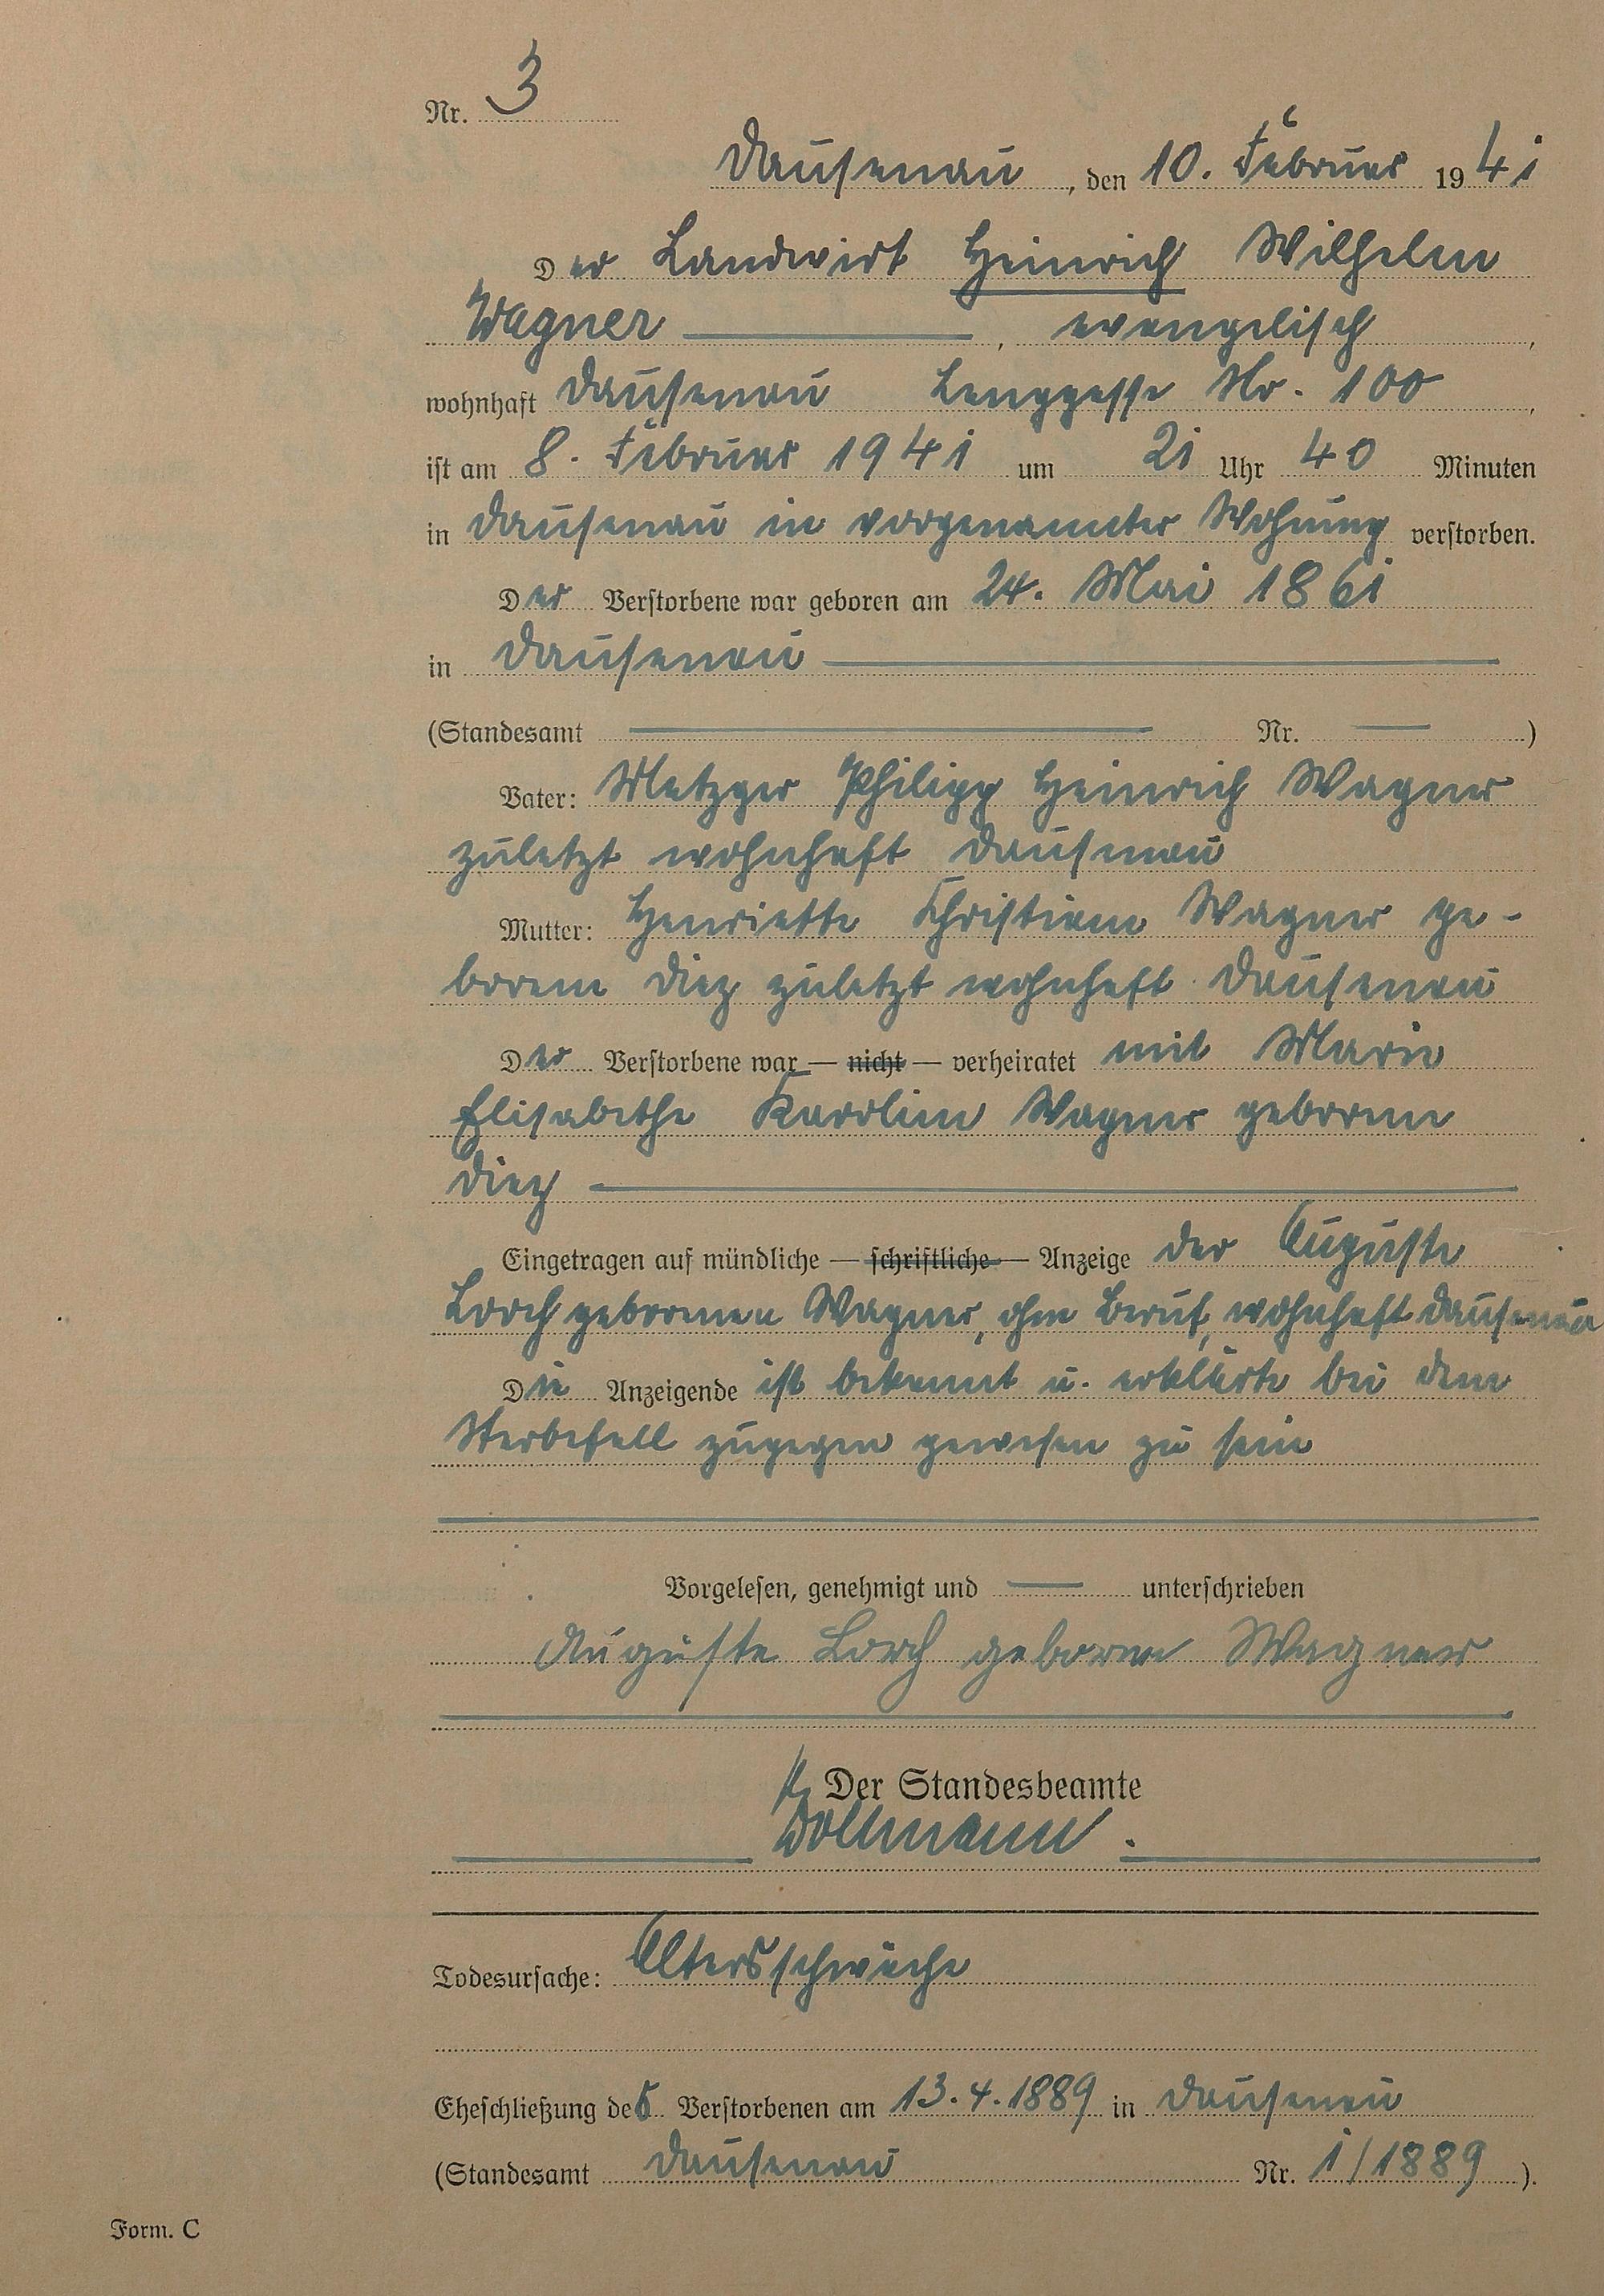 Nr. 3
Dausenau, den 10. Februar 1941
Der Landwirt Heinrich Wilhelm
Wagner, evangelisch,
wohnhaft Dausenau Langgasse Nr. 100,
ist am 8. Februar 1941 um 21 Uhr 40 Minuten
in Dausenau in vorgenannter Wohnung verstorben.
Der Verstorbene war geboren am 24. Mai 1861
in Dausenau
(Standesamt Nr. )
Vater: Metzger Philipp Heinrich Wagner
zuletzt wohnhaft Dausenau
Mutter: Henriette Christiane Wagner ge-
borene Diez zuletzt wohnhaft Dausenau
Der Verstorbene war — nicht — verheiratet mit Marie
Elisabethe Karoline Wagner geborene
Diez
Eingetragen auf mündliche — schriftliche — Anzeige der Auguste
Lorch geborenen Wagner, ohne Beruf, wohnhaft Dausenau
Die Anzeigende ist bekannt u. erklärte bei dem
Sterbefall zugegen gewesen zu sein
Vorgelesen, genehmigt und unterschrieben
Auguste Lorch geborene Wagner
Der Standesbeamte
Dollmann.
Todesursache: Altersschwäche
Eheschließung des Verstorbenen am 13.4.1889 in Dausenau
(Standesamt Dausenau Nr. 1/1889 ).
Form. C